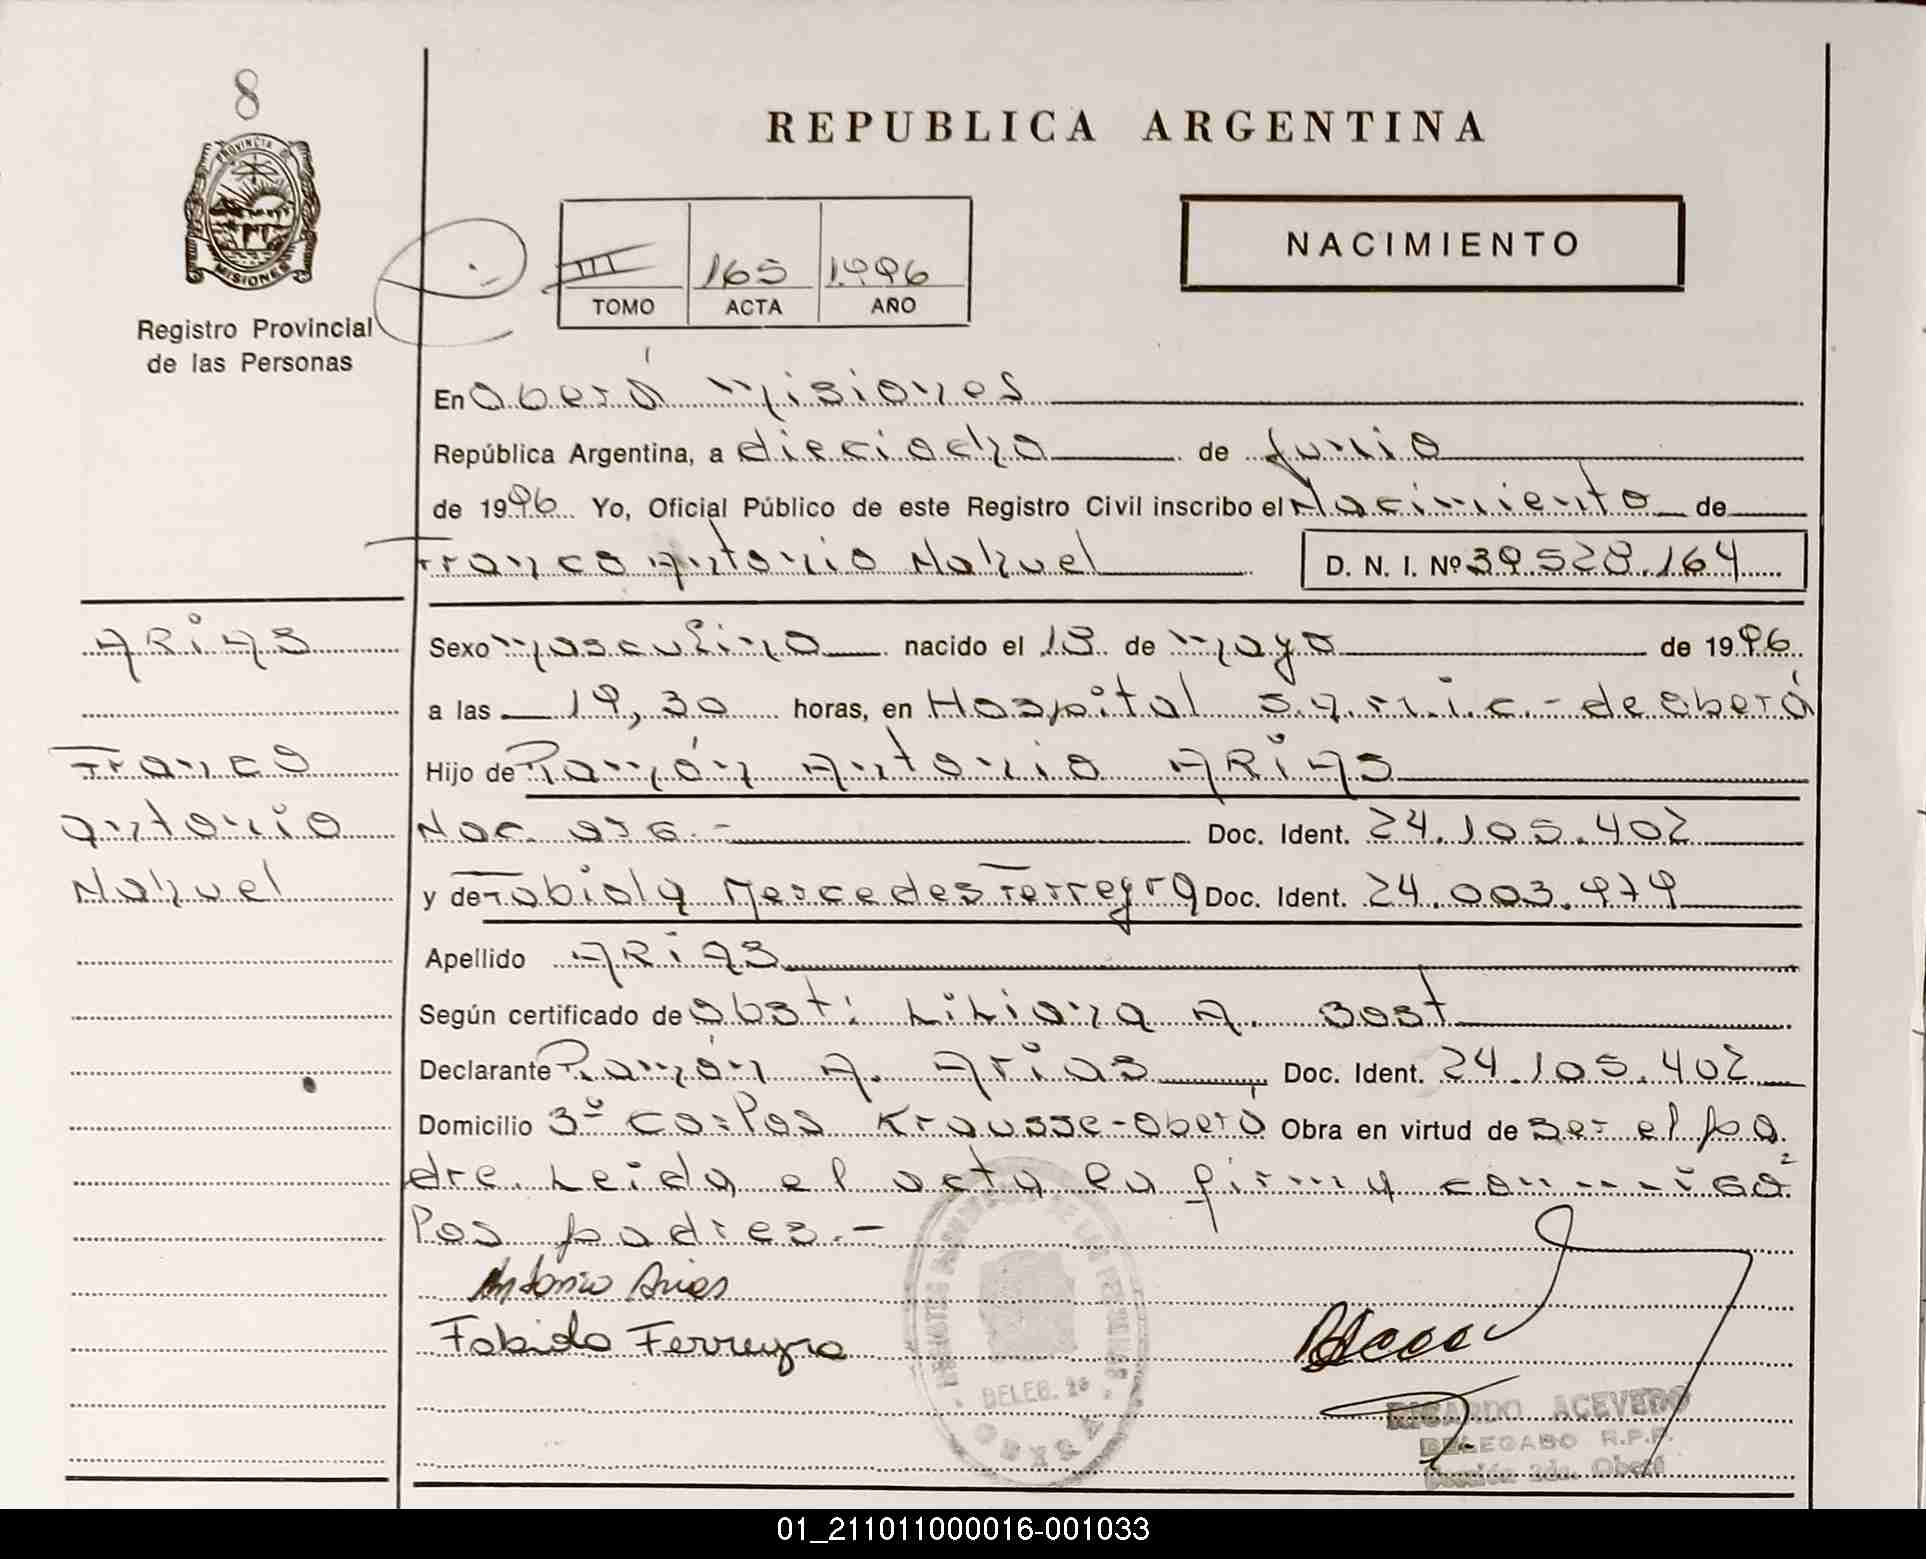 8
PROVINCIA DE
MISIONES
Registro Provincial
de las Personas
REPUBLICA ARGENTINA
NACIMIENTO
III 165 1.996
TOMO ACTA AÑO
En Oberá Misiones
República Argentina, a dieciocho de Junio
de 1996 Yo, Oficial Público de este Registro Civil inscribo el Nacimiento de
Franco Antonio Nahuel D. N. I. Nº 39.528.164
ARiAS
Franco
Antonio
Nahuel
Sexo Masculino nacido el 18 de Mayo de 1996
a las 19,30 horas, en Hospital de Oberá
Hijo de Ramón Antonio ARiAS
Nac. arg.- Doc. Ident. 24.105.402
y de Fabiola Mercedes Ferreyra Doc. Ident. 24.003.979
Apellido ARiAS
Según certificado de Obst: Liliana A. Bost
Declarante Ramón A. Arias Doc. Ident. 24.105.402
Domicilio Carlos Krausse-Oberá Obra en virtud de ser el pa
dre. Leida el acta la firman conmigo
los padres.-
Antonio Arias
Fabiola Ferreyra
DELEG.
RICARDO ACEVEDO
DELEGADO R.P.P.
Sección 2da. Oberá
01_211011000016-001033